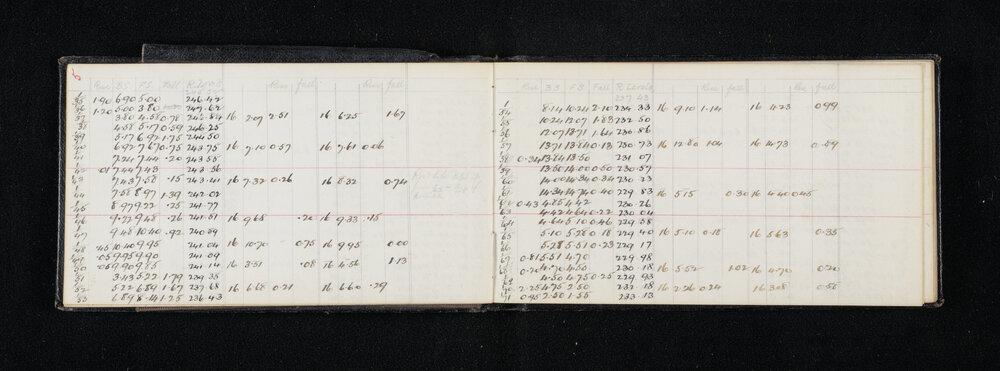 6
Rise B.S F.S Fall R. Levels Rise fall Rise fall
35 1.90 6.90 5.00 246.42
36 1.20 5.00 3.80 247.62
37 3.80 4.58 0.78 246.84 16 2.07 2.51 16 6.25 1.67
38 4.58 5.17 0.59 246.25
39 5.17 6.92 1.75 244.50
40 6.92 7.67 0.75 243.75 16 7.10 0.57 16 7.61 0.06
41 7.24 7.44 .20 243.55
42 .01 7.44 7.43 243.56
43 7.43 7.58 .15 243.41 16 7.32 0.26 16 8.32 0.74
44 7.58 8.97 1.39 242.02
45 8.97 9.22 .25 241.77
46 9.22 9.48 .26 241.51 16 9.68 .20 16 9.33 .15
47 9.48 10.40 .92 240.59
48 .45 10.40 9.95 241.04 16 10.70 0.75 16 9.95 0.00
49 .05 9.95 9.90 241.09
50 .05 9.90 9.85 241.14 16 3.51 .08 16 4.56 1.13
51 3.43 5.22 1.79 239.35
52 5.22 6.89 1.67 237.68 16 6.68 0.21 16 6.60 .29
53 6.89 8.14 1.25 236.43
Rise B.S F.S Fall R Levels Rise fall Rise fall
54 8.14 10.24 2.10 234.33 16 9.10 1.14 16 4.23 0.99
55 10.24 12.07 1.83 232.50
56 12.07 13.71 1.64 230.86
57 13.71 13.84 0.13 230.73 16 12.80 1.04 16 14.73 0.89
58 0.34 13.84 13.50 231.07
59 13.50 14.00 0.50 230.57
60 14.00 14.34 0.34 230.23
61 14.34 14.74 0.40 229.83 16 5.15 0.30 16 4.40 0.45
62 0.43 4.85 4.42 230.26
63 4.42 4.64 0.22 230.04
64 4.64 5.10 0.46 229.58
65 5.10 5.28 0.18 229.40 16 5.10 0.18 16 5.63 0.35
66 5.28 5.51 0.23 229.17
67 0.81 5.51 4.70 229.98
68 0.20 4.70 4.50 230.18 16 5.52 1.02 16 4.70 0.20
69 4.50 4.75 0.25 229.93
70 2.25 4.75 2.50 232.18 16 2.26 0.24 16 3.08 0.58
71 0.95 2.50 1.55 233.13